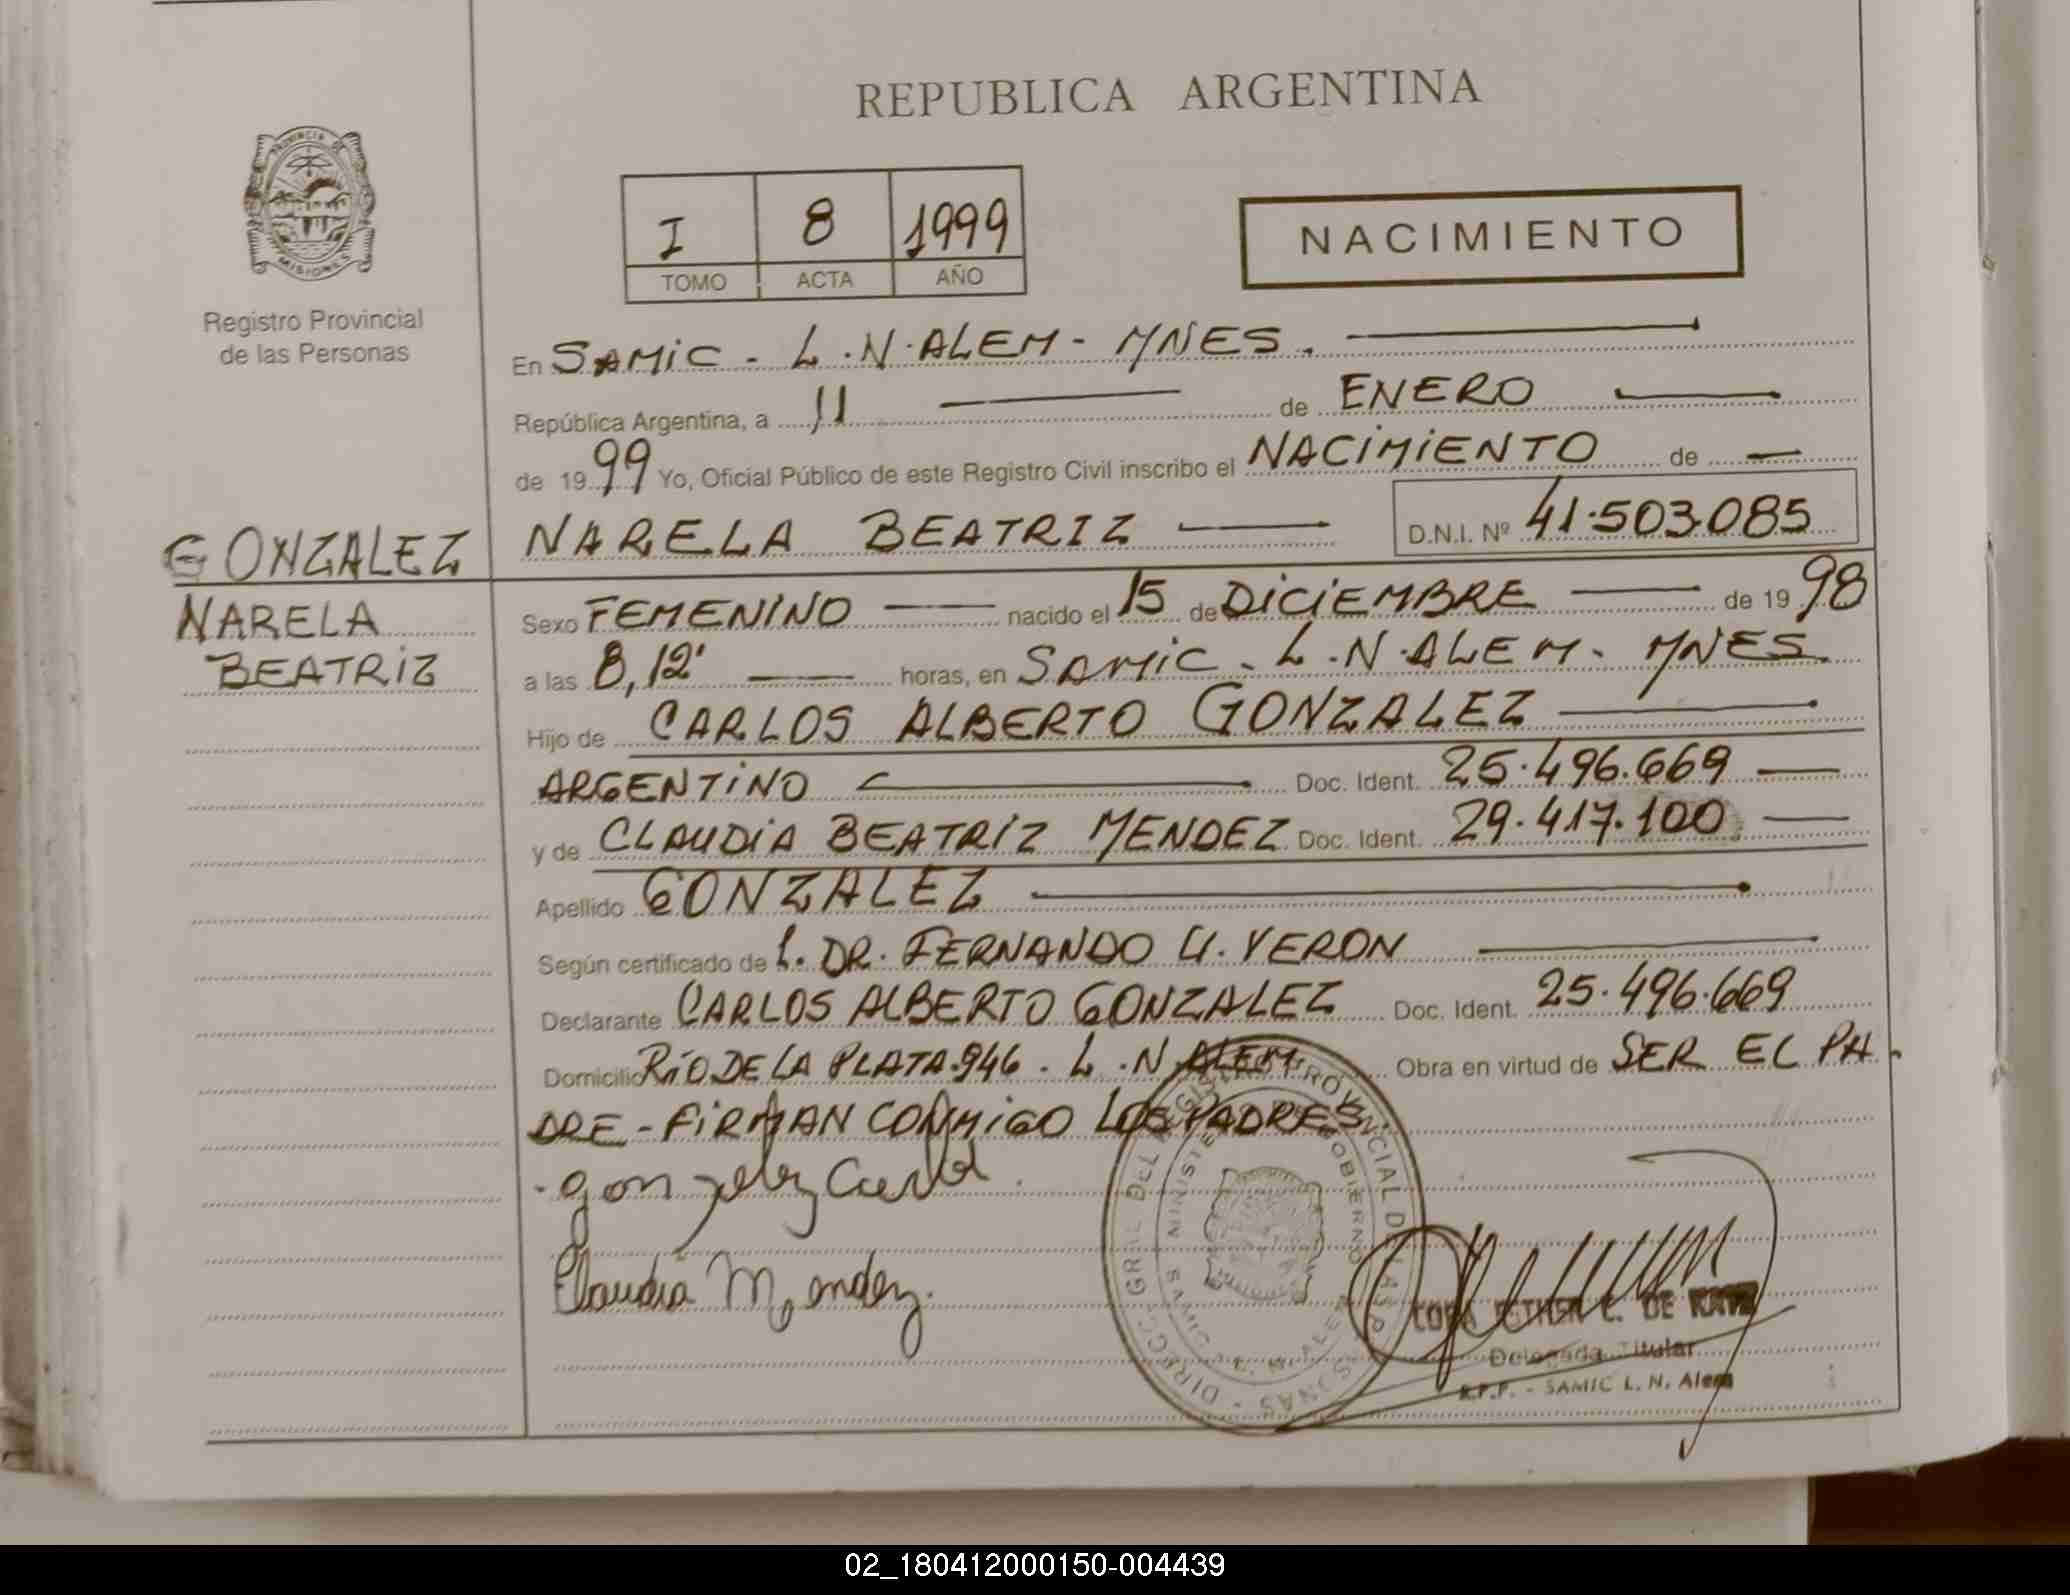 REPUBLICA ARGENTINA
PROVINCIA DE MISIONES
Registro Provincial
de las Personas
I 8 1999
TOMO ACTA AÑO
NACIMIENTO
En SAMIC - L.N. ALEM - MNES.
República Argentina, a 11 de ENERO
de 1999 Yo, Oficial Público de este Registro Civil inscribo el NACIMIENTO de
GONZALEZ NARELA BEATRIZ D.N.I. Nº 41.503.085
NARELA
BEATRIZ
Sexo FEMENINO nacido el 15 de DICIEMBRE de 1998
a las 8,12' horas, en SAMIC - L.N. ALEM - MNES.
Hijo de CARLOS ALBERTO GONZALEZ
ARGENTINO Doc. Ident. 25.496.669
y de CLAUDIA BEATRIZ MENDEZ Doc. Ident. 29.417.100
Apellido GONZALEZ
Según certificado de L. DR. FERNANDO U. VERON
Declarante CARLOS ALBERTO GONZALEZ Doc. Ident. 25.496.669
Domicilio RIO DE LA PLATA 946 - L.N. ALEM. Obra en virtud de SER EL PA-
DRE - FIRMAN CONMIGO LOS PADRES.
gonzalez Carlos
Claudia Mendez.
DIRECC. GRAL DEL REGISTRO PROVINCIAL DE LAS PERSONAS
MINISTERIO DE GOBIERNO
SAMIC L. N. ALEM
ESTHER C. DE KATZ
Delegada Titular
R.P.P. - SAMIC L. N. Alem
02_180412000150-004439